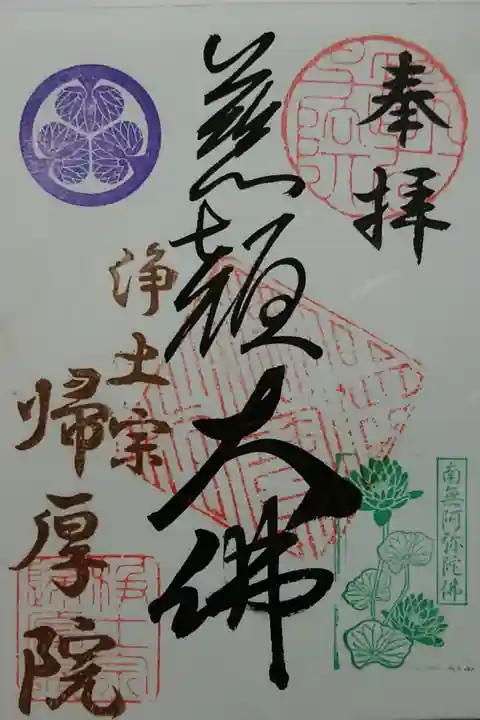 奉拝
慈顔大佛
浄土宗
帰厚院
南無阿弥陀佛